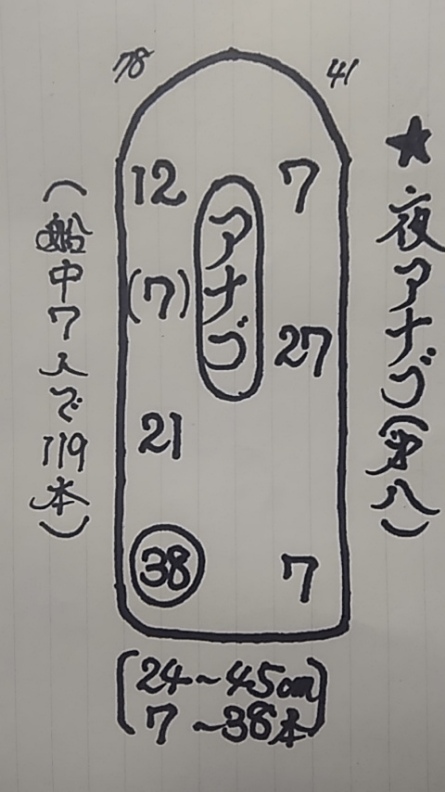 ★夜アナゴ(第八)
78
41
アナゴ
12
7
(7)
27
21
38
7
(船中7人で119本)
(24~45cm
7~38本)